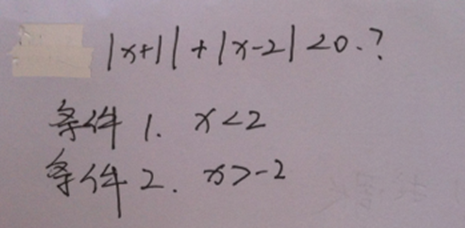 |x+1|+|x-2|<0.?
条件1. x<2
条件2. x>-2